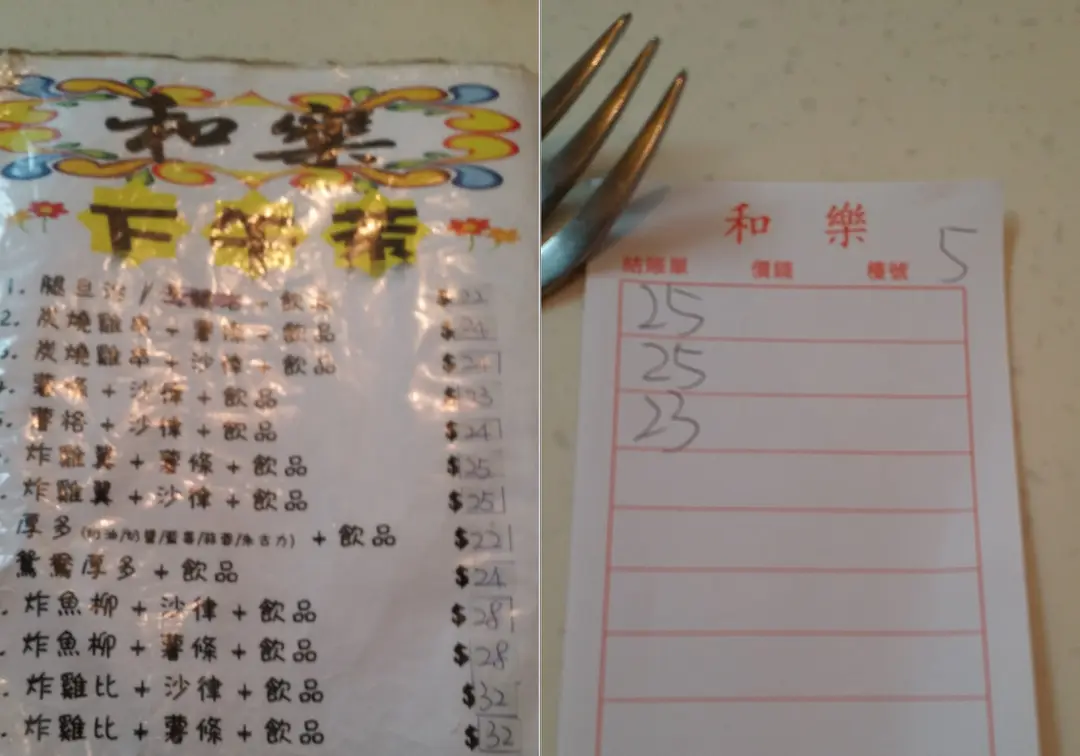 和樂
下午茶
1. 腿旦治 / + 飲品 $22
2. 炭燒雞串 + 薯條 + 飲品 $24
3. 炭燒雞串 + 沙律 + 飲品 $24
薯條 + 沙律 + 飲品 $23
薯格 + 沙律 + 飲品 $24
炸雞翼 + 薯條 + 飲品 $25
炸雞翼 + 沙律 + 飲品 $25
厚多 (奶油/奶醬/藍莓/蒜蓉/朱古力) + 飲品 $22
鴛鴦厚多 + 飲品 $24
炸魚柳 + 沙律 + 飲品 $28
炸魚柳 + 薯條 + 飲品 $28
炸雞比 + 沙律 + 飲品 $32
炸雞比 + 薯條 + 飲品 $32
和樂
結賬單 價錢 檯號 5
25
25
23